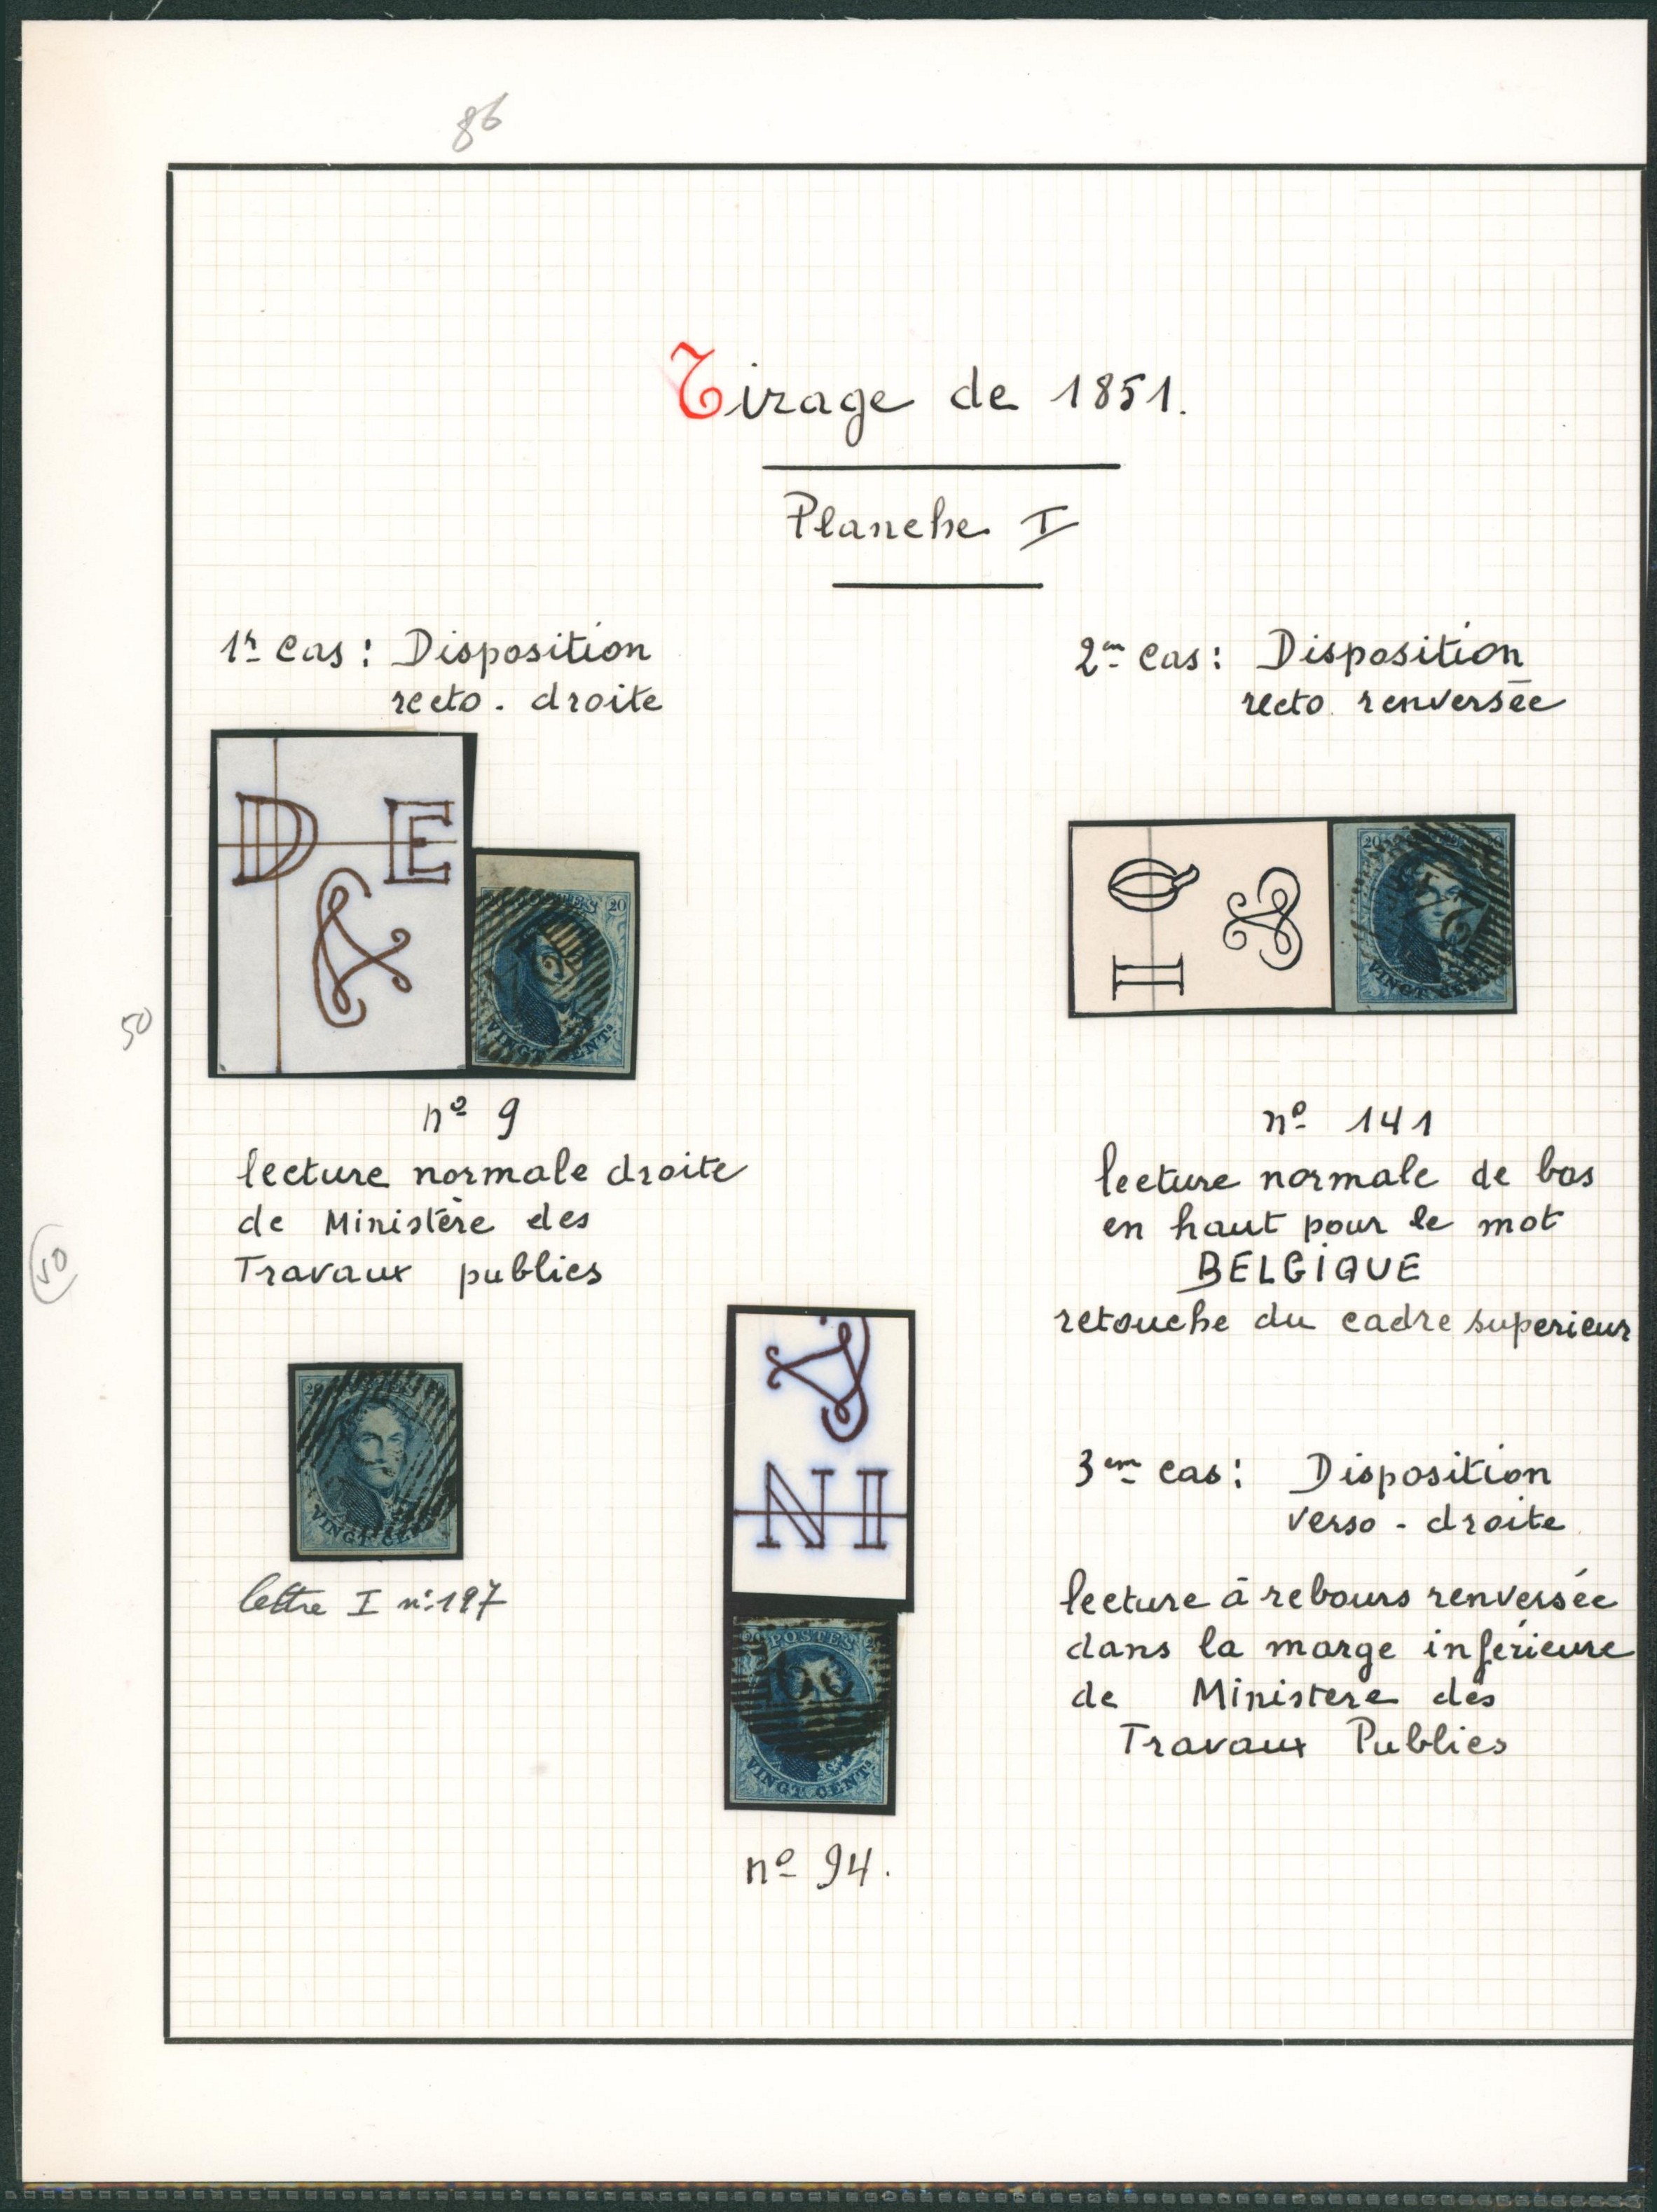 86
Tirage de 1851.
Planche I
1r cas : Disposition
recto - droite
D E
20
VINGT CENTS
n° 9
lecture normale droite
de Ministère des
Travaux publics
50
50
lettre I n° 197
VINGT CE
2me cas : Disposition
recto renversée
I Q
20
VINGT CE
n° 141
lecture normale de bas
en haut pour le mot
BELGIQUE
retouche du cadre superieur
N I
POSTES
VINGT CENTS
n° 94.
3em cas : Disposition
verso - droite
lecture à rebours renversée
dans la marge inférieure
de Ministere des
Travaux Publics